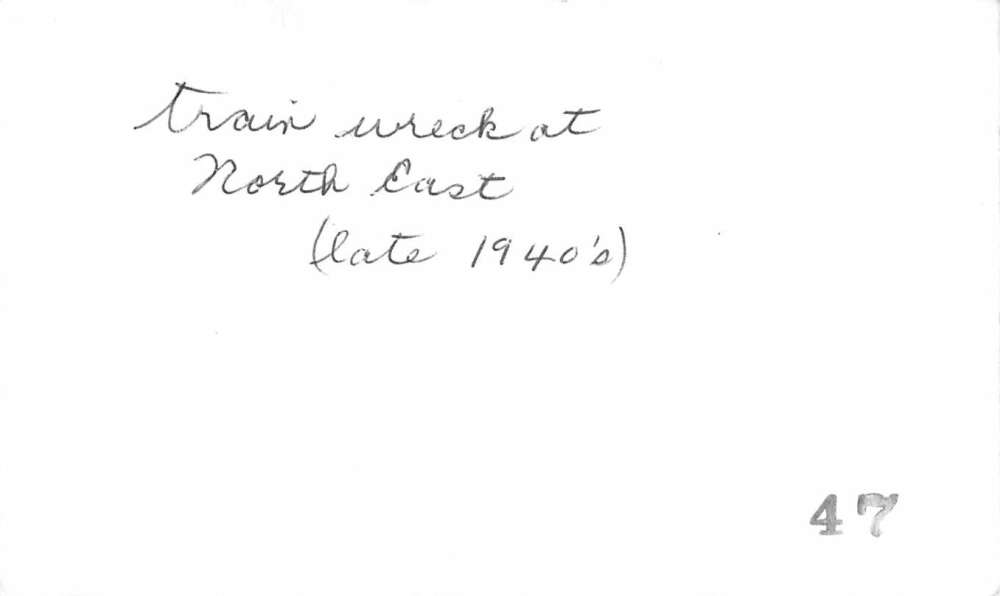 train wreck at
North East
(late 1940's)
47